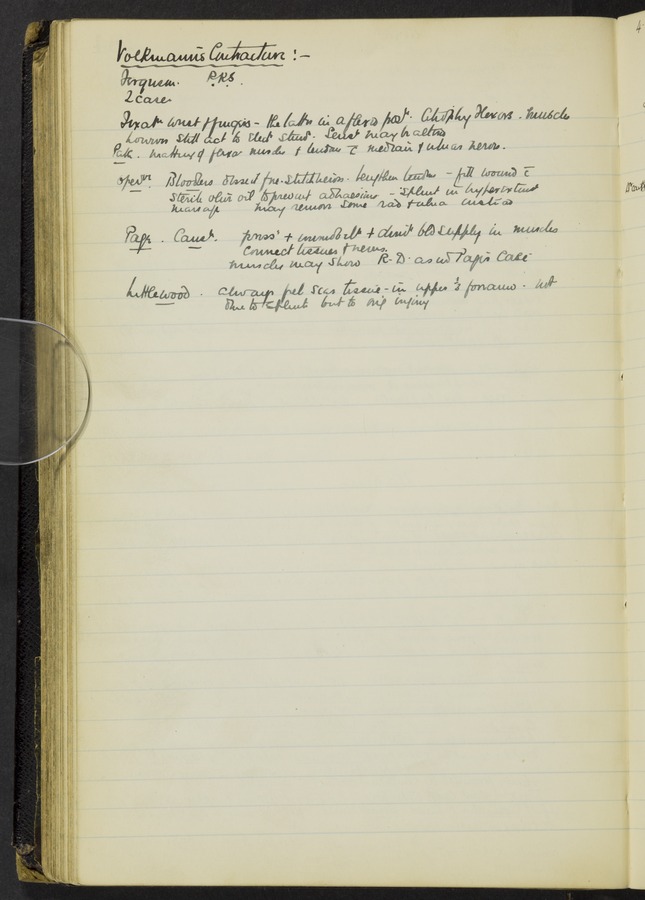 Volkmann's Contracture :-
Ferguson. P.R.S.
2 cases
Fixatn wrist & fingers - the latter in a flexed post. Atrophy flexors. muscles
however still act to elect stim. Sensn may be altered
Path. matting of flexor muscles & tendons c̄ median & ulnar nerves.
opern. Bloodless dissect free - lengthen tendons - fill wound c̄
sterile olive oil to prevent adhaesions - splint in hyperextens
massage may remove some rad & ulna instead
Page. Caust. press & immobilt + dimin bld supply in muscles
Connect tissues & nerves.
muscles may show R.D. as in Page's Case
Littlewood. always feel scar tissue - in upper ⅓ forearm - not
due to splint but to orig injury